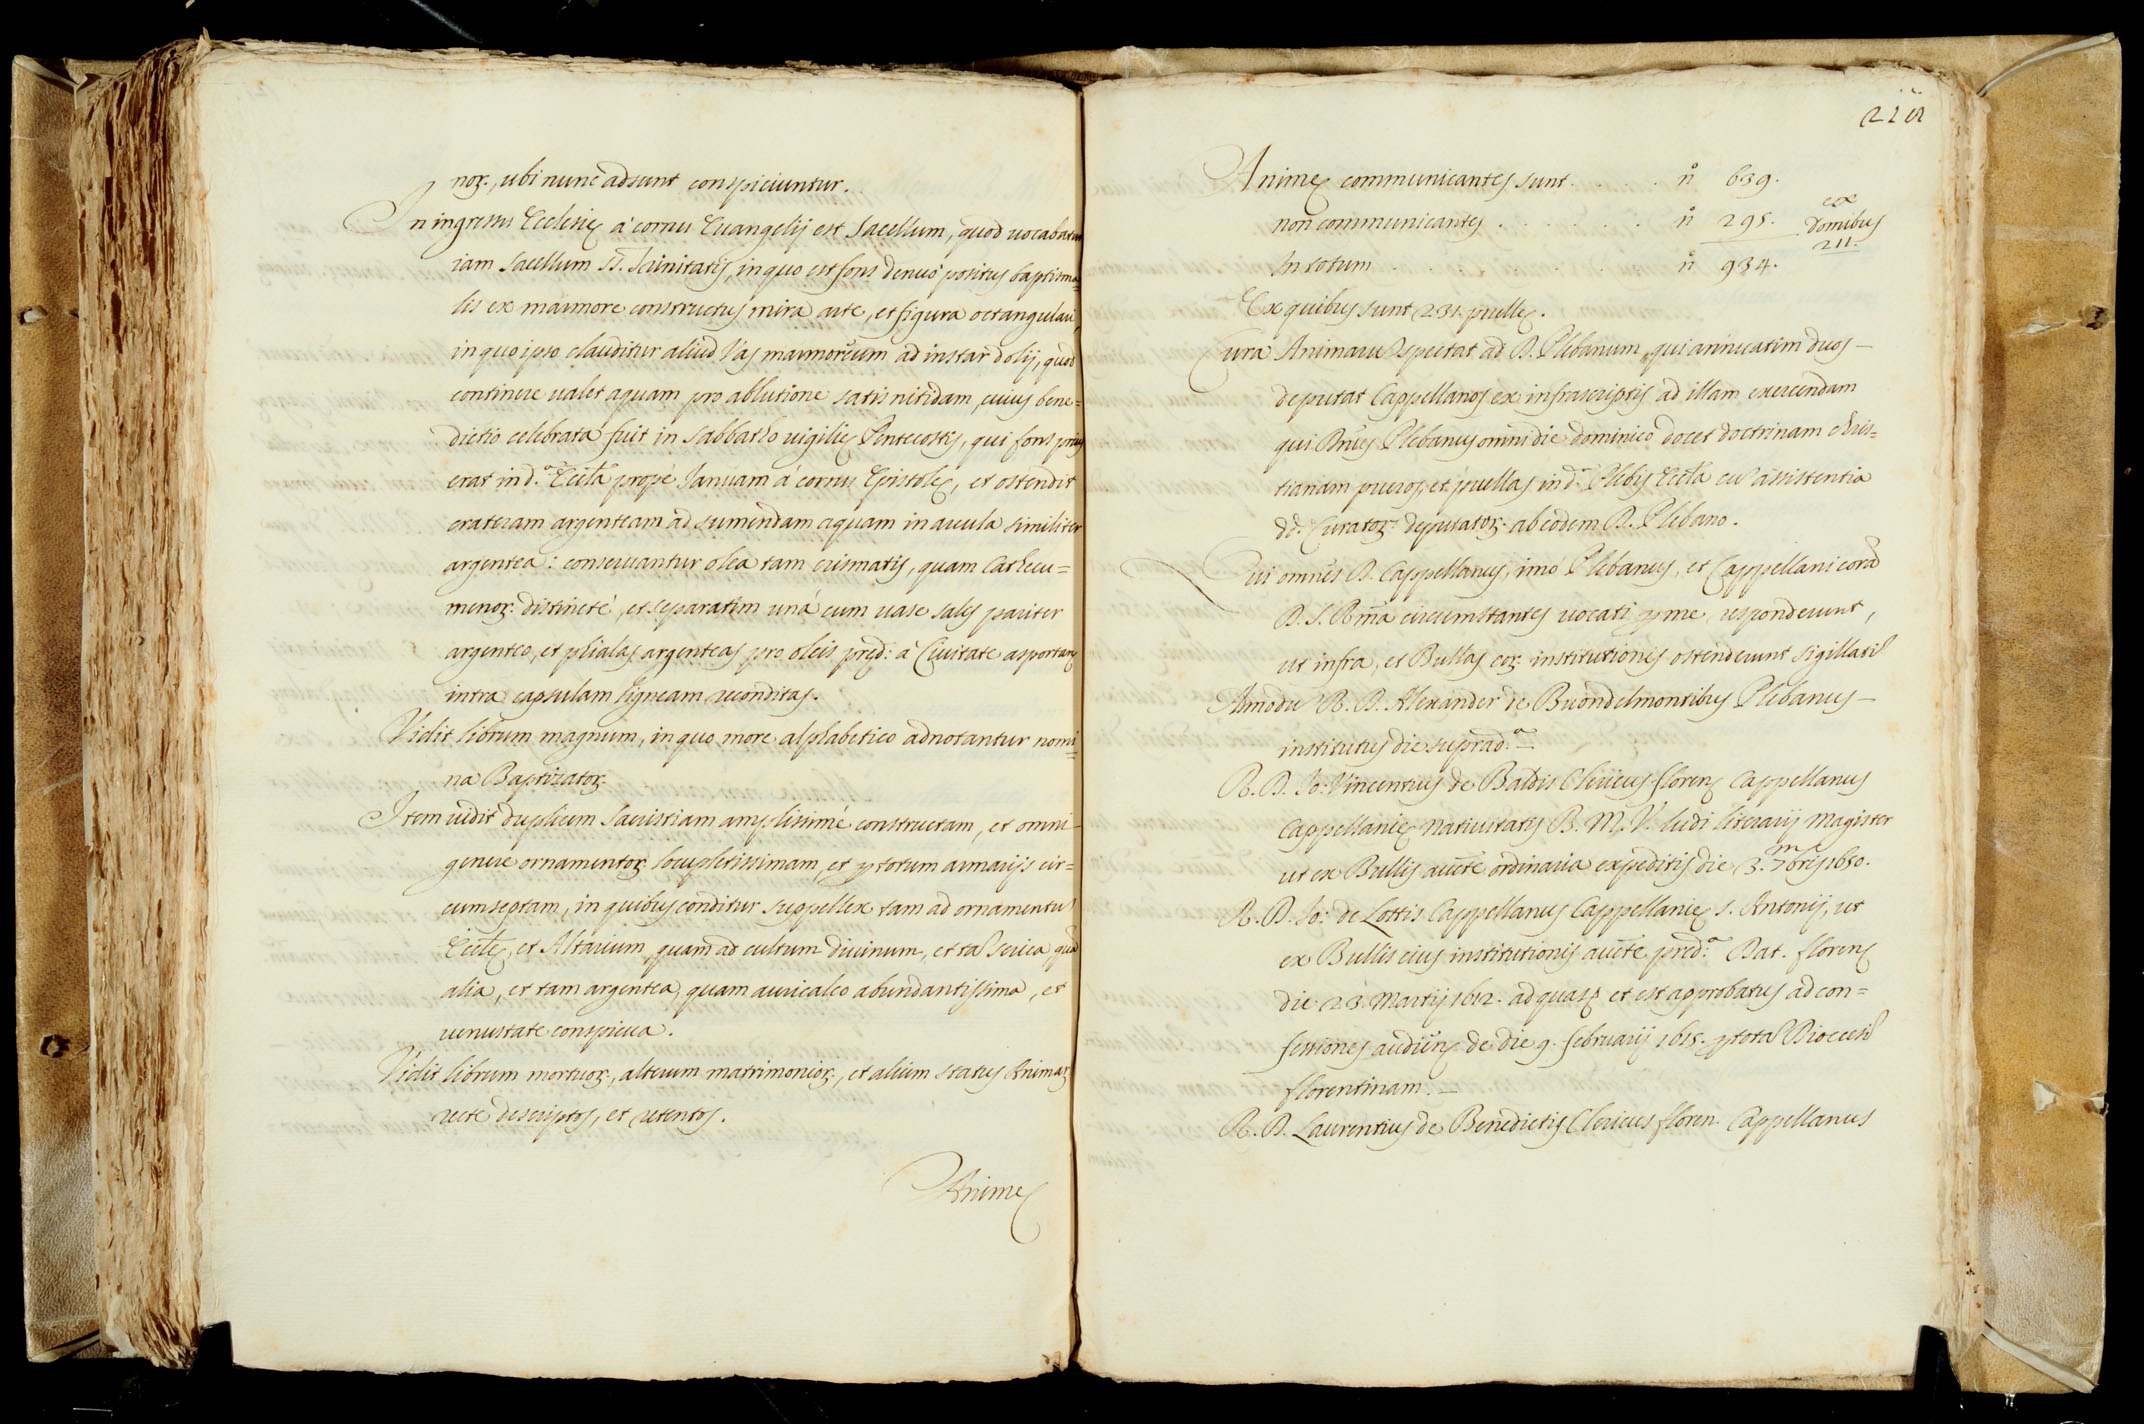 nor., ubi nunc adsunt conspiciuntur.
In ingressu Ecclesię à cornu Euangelij est Sacellum, quod uocabatur
iam Sacellum SS. Trinitatis, in quo est fons denuò positus baptisma=
lis ex marmore constructus mira arte, et figura octangulari,
in quo ipso clauditur aliud Vas marmoreum ad instar dolij, quod
continere ualet aquam pro ablutione satis nitidam, cuius bene=
dictio celebrata fuit in Sabbatho uigilię Pentecostis, qui fons prius
erat in d.ª Eccl̃a propè Januam à cornu Epistolę, et ostendit
crateram argenteam ad sumendam aquam in arcula similiter
argentea: conseruantur olea tam crismatis, quam Cathecu=
menor: distinctè, et separatim unà cum uase salis pariter
argenteo, et phialas argenteas pro oleis pręd: à Ciuitate asportan
intra capsulam ligneam reconditas.
Vidit librum magnum, in quo more alphabetico adnotantur nomi=
na Baptizator.
Item uidit duplicem Sacristiam amplissimè constructam, et omni
genere ornamentor locupletissimam, et p totum armarijs cir=
cumseptam, in quibus conditur suppellex tam ad ornamentũ
Eccl̃ę, et Altarium, quam ad cultum diuinum, et tã serica quã
alia, et tam argentea, quam auricalco abundantissima, et
uenustate conspicua.
Vidit librum mortuor., alterum matrimonior., et alium status Animar
rectè descriptos, et retentos.
Animę
Animę communicantes sunt . . . . . n° 639.
non communicantes . . . . . . n° 295.
ex
domibus
211.
In totum . . . . . . n° 934.
Ex quibus sunt 231. puellę.
Cura Animarũ spectat ad D. Plebanum, qui annuatim duos
deputat Cappellanos ex infrascriptis ad illam exercendam
qui D̃nus Plebanus omni die dominico docet doctrinam chris=
tianam pueros, et puellas in d.ª Plebis Eccl̃a cũ assistentia
dd. Curator: deputator. ab eodem D. Plebano.
Qui omnes D. Cappellanus, imò Plebanus, et Cappellani corã
D. S. R̃ma circumstantes uocati p me, responderunt,
ut infra, et Bullas eor. institutionis ostenderunt sigillatĩ
Admodũ R. D. Alexander de Buondelmontibus Plebanus
institutus die suprad.ª
R. D. Jo: Vincentius de Baldis Clericus floren Cappellanus
Cappellanię Natiuitatis B. M. V. ludi literarij Magister
ut ex Bullis aucte ordinaria expeditis die 3. 7mbris 1630.
R. D. Jo: de Lottis Cappellanus Cappellanię S. Antonij, ut
ex Bullis eius institutionis aucte pręd.ª Dat. floren
die 23. Martij 1612. ad quas et est approbatus ad con=
fessiones audien de die 9. februarij 1615. p totã Diocesĩ
florentinam.
R. D. Laurentius de Benedictis Clericus floren. Cappellanus